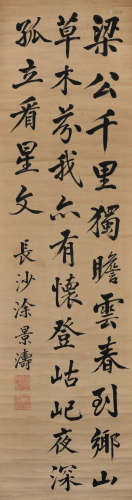 梁公千里獨瞻雲春到鄉山
草木芬我亦有懷登岵屺夜深
孤立看星文
長沙涂景濤